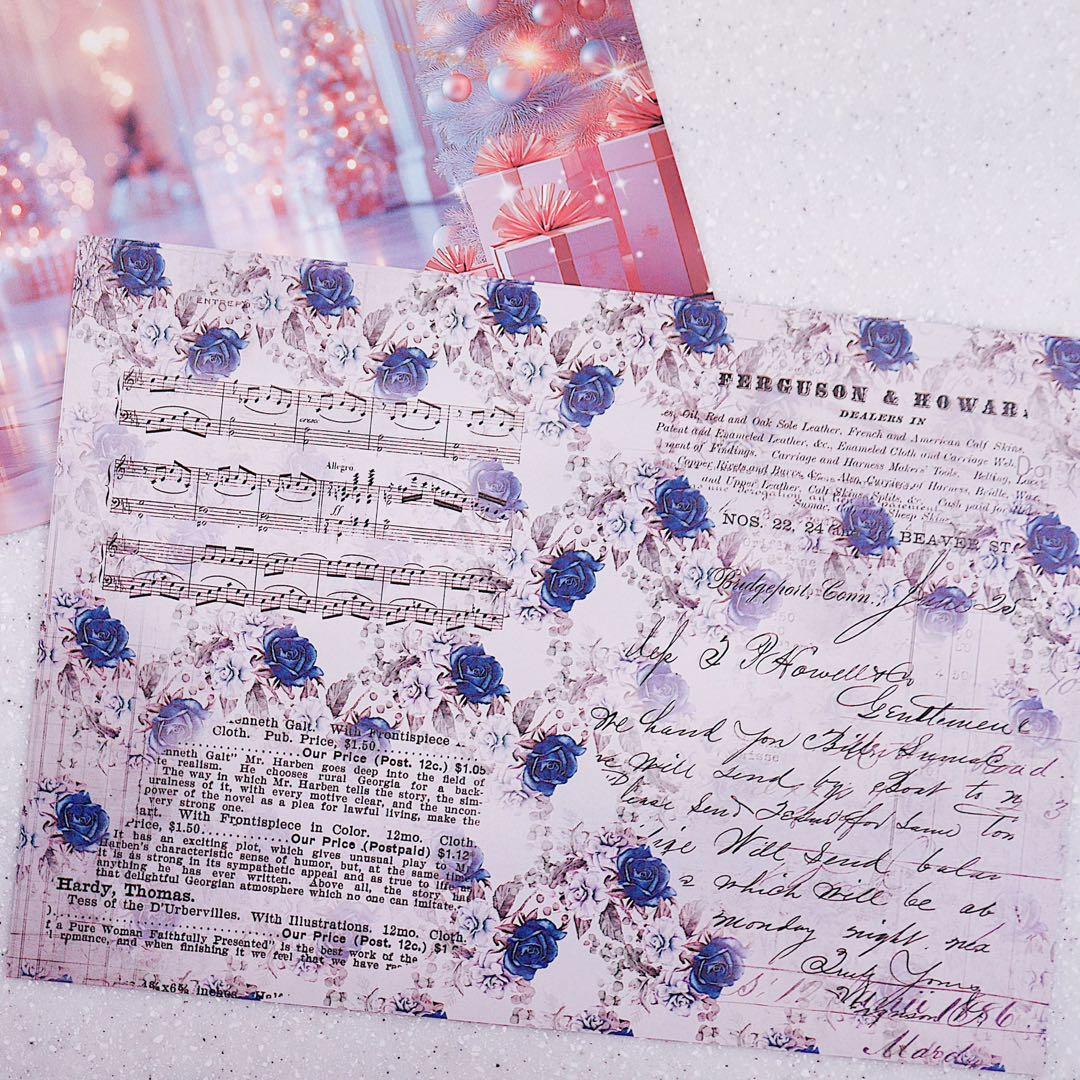 ENTREP
Allegro.
ff
enneth Galt. With Frontispiece
Cloth. Pub. Price, $1.50.
Our Price (Post. 12c.) $1.05
nneth Galt" Mr. Harben goes deep into the field of
te realism. He chooses rural Georgia for a back-
The way in which Mr. Harben tells the story, the sim-
uralness of it, with every motive clear, and the uncon-
power of the novel as a plea for lawful living, make the
very strong one.
art. With Frontispiece in Color. 12mo. Cloth.
Price, $1.50........Our Price (Postpaid) $1.12
It has an exciting plot, which gives unusual play to M
Harben's characteristic sense of humor, but, at the same time
it is as strong in its sympathetic appeal and as true to life as
anything he has ever written. Above all, the story has
that delightful Georgian atmosphere which no one can imitate.
Hardy, Thomas.
Tess of the D'Urbervilles. With Illustrations. 12mo. Cloth.
Our Price (Post. 12c.) $1
f a Pure Woman Faithfully Presented" is the best work of the
romance, and when finishing it we feel that we have
x6¾ inches.
FERGUSON & HOWAR
DEALERS IN
es, Oil, Red and Oak Sole Leather, French and American Calf Skins,
Patent and Enameled Leather, &c., Enameled Cloth and Carriage
ment of Findings. Carriage and Harness Makers' Tools. Belting, Lace
Copper Rivets and Burrs, &c. Also, Curriers of Harness, Bridle, Wax
and Upper Leather, Calf Skins, Splits, &c. Cash paid for
Sumac Sheep Skins
NOS. 22, 24 BEAVER ST
Bridgeport, Conn., June 25
J P Howell & Co
Gentlemen
We hand you Bill Sumac
will send by Boat to n
Please Send for Same
Will Send balan
which will be ab
monday night nex
Truly Yours
1886